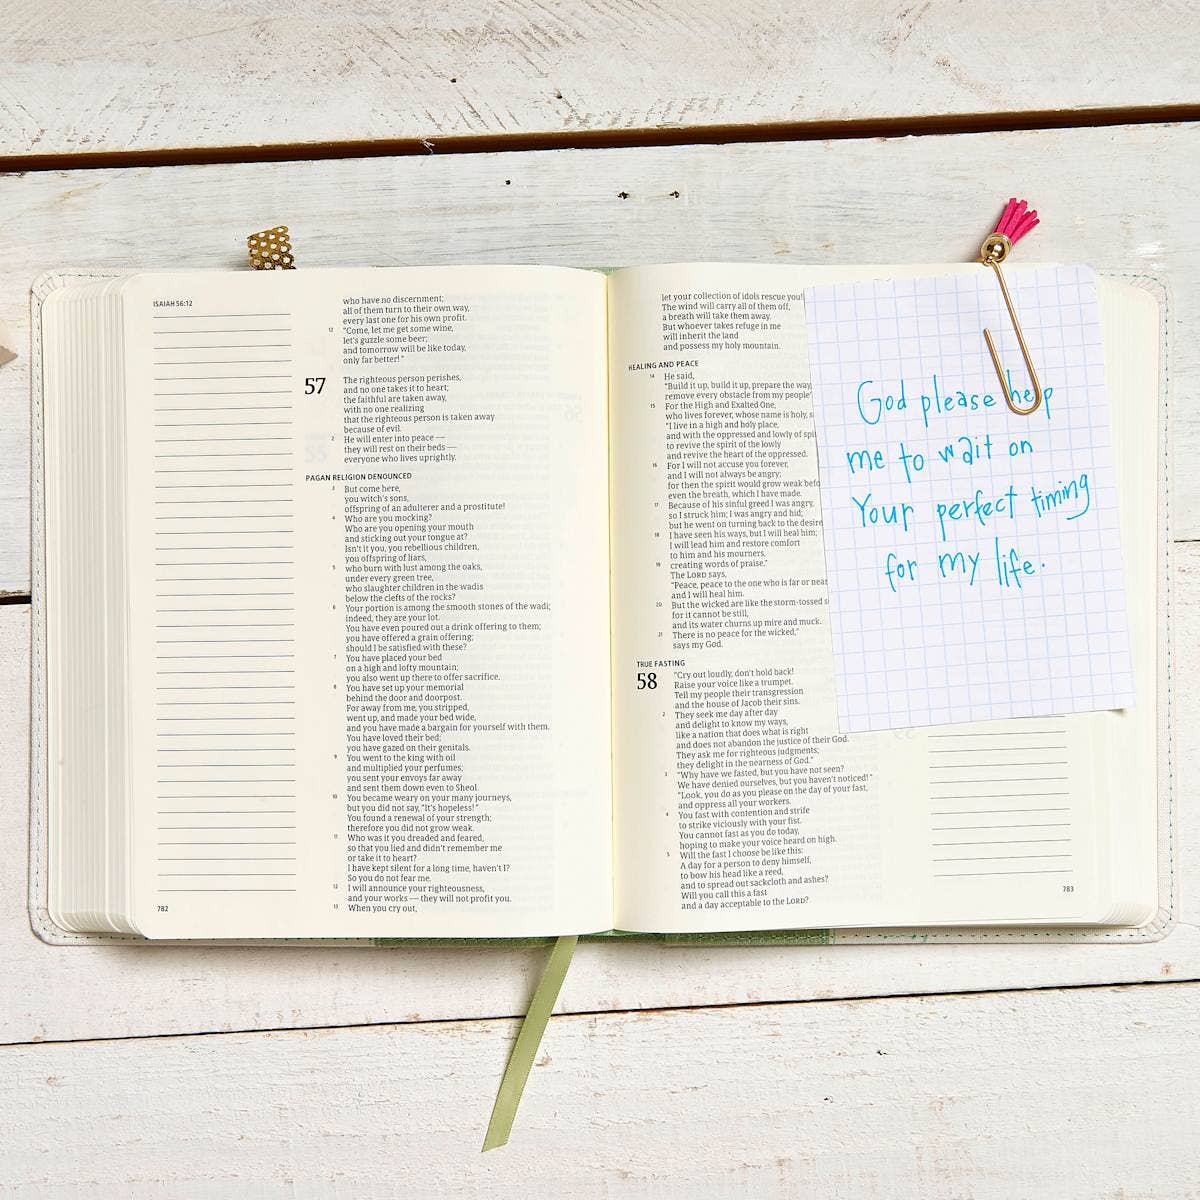 ISAIAH 56:12
who have no discernment;
all of them turn to their own way,
every last one for his own profit.
12 "Come, let me get some wine,
let's guzzle some beer;
and tomorrow will be like today,
only far better!"
57 The righteous person perishes,
and no one takes it to heart;
the faithful are taken away,
with no one realizing
that the righteous person is taken away
because of evil.
2 He will enter into peace —
they will rest on their beds —
everyone who lives uprightly.
PAGAN RELIGION DENOUNCED
3 But come here,
you witch's sons,
offspring of an adulterer and a prostitute!
4 Who are you mocking?
Who are you opening your mouth
and sticking out your tongue at?
Isn't it you, you rebellious children,
you offspring of liars,
5 who burn with lust among the oaks,
under every green tree,
who slaughter children in the wadis
below the clefts of the rocks?
6 Your portion is among the smooth stones of the wadi;
indeed, they are your lot.
You have even poured out a drink offering to them;
you have offered a grain offering;
should I be satisfied with these?
7 You have placed your bed
on a high and lofty mountain;
you also went up there to offer sacrifice.
8 You have set up your memorial
behind the door and doorpost.
For away from me, you stripped,
went up, and made your bed wide,
and you have made a bargain for yourself with them.
You have loved their bed;
you have gazed on their genitals.
9 You went to the king with oil
and multiplied your perfumes;
you sent your envoys far away
and sent them down even to Sheol.
10 You became weary on your many journeys,
but you did not say, "It's hopeless!"
You found a renewal of your strength;
therefore you did not grow weak.
11 Who was it you dreaded and feared,
so that you lied and didn't remember me
or take it to heart?
I have kept silent for a long time, haven't I?
So you do not fear me.
12 I will announce your righteousness,
and your works — they will not profit you.
13 When you cry out,
782
let your collection of idols rescue you!
The wind will carry all of them off,
a breath will take them away.
But whoever takes refuge in me
will inherit the land
and possess my holy mountain.
HEALING AND PEACE
14 He said,
"Build it up, build it up, prepare the way,
remove every obstacle from my people'
15 For the High and Exalted One,
who lives forever, whose name is holy, s
"I live in a high and holy place,
and with the oppressed and lowly of spi
to revive the spirit of the lowly
and revive the heart of the oppressed.
16 For I will not accuse you forever,
and I will not always be angry;
for then the spirit would grow weak befo
even the breath, which I have made.
17 Because of his sinful greed I was angry,
so I struck him; I was angry and hid;
but he went on turning back to the desire
18 I have seen his ways, but I will heal him;
I will lead him and restore comfort
to him and his mourners,
19 creating words of praise."
The LORD says,
"Peace, peace to the one who is far or near
and I will heal him.
20 But the wicked are like the storm-tossed s
for it cannot be still,
and its water churns up mire and muck.
21 There is no peace for the wicked,"
says my God.
TRUE FASTING
58 "Cry out loudly, don't hold back!
Raise your voice like a trumpet.
Tell my people their transgression
and the house of Jacob their sins.
2 They seek me day after day
and delight to know my ways,
like a nation that does what is right
and does not abandon the justice of their God.
They ask me for righteous judgments;
they delight in the nearness of God."
3 "Why have we fasted, but you have not seen?
We have denied ourselves, but you haven't noticed!"
"Look, you do as you please on the day of your fast,
and oppress all your workers.
4 You fast with contention and strife
to strike viciously with your fist.
You cannot fast as you do today,
hoping to make your voice heard on high.
5 Will the fast I choose be like this:
A day for a person to deny himself,
to bow his head like a reed,
and to spread out sackcloth and ashes?
Will you call this a fast
and a day acceptable to the LORD?
783
God please help
me to wait on
Your perfect timing
for my life.